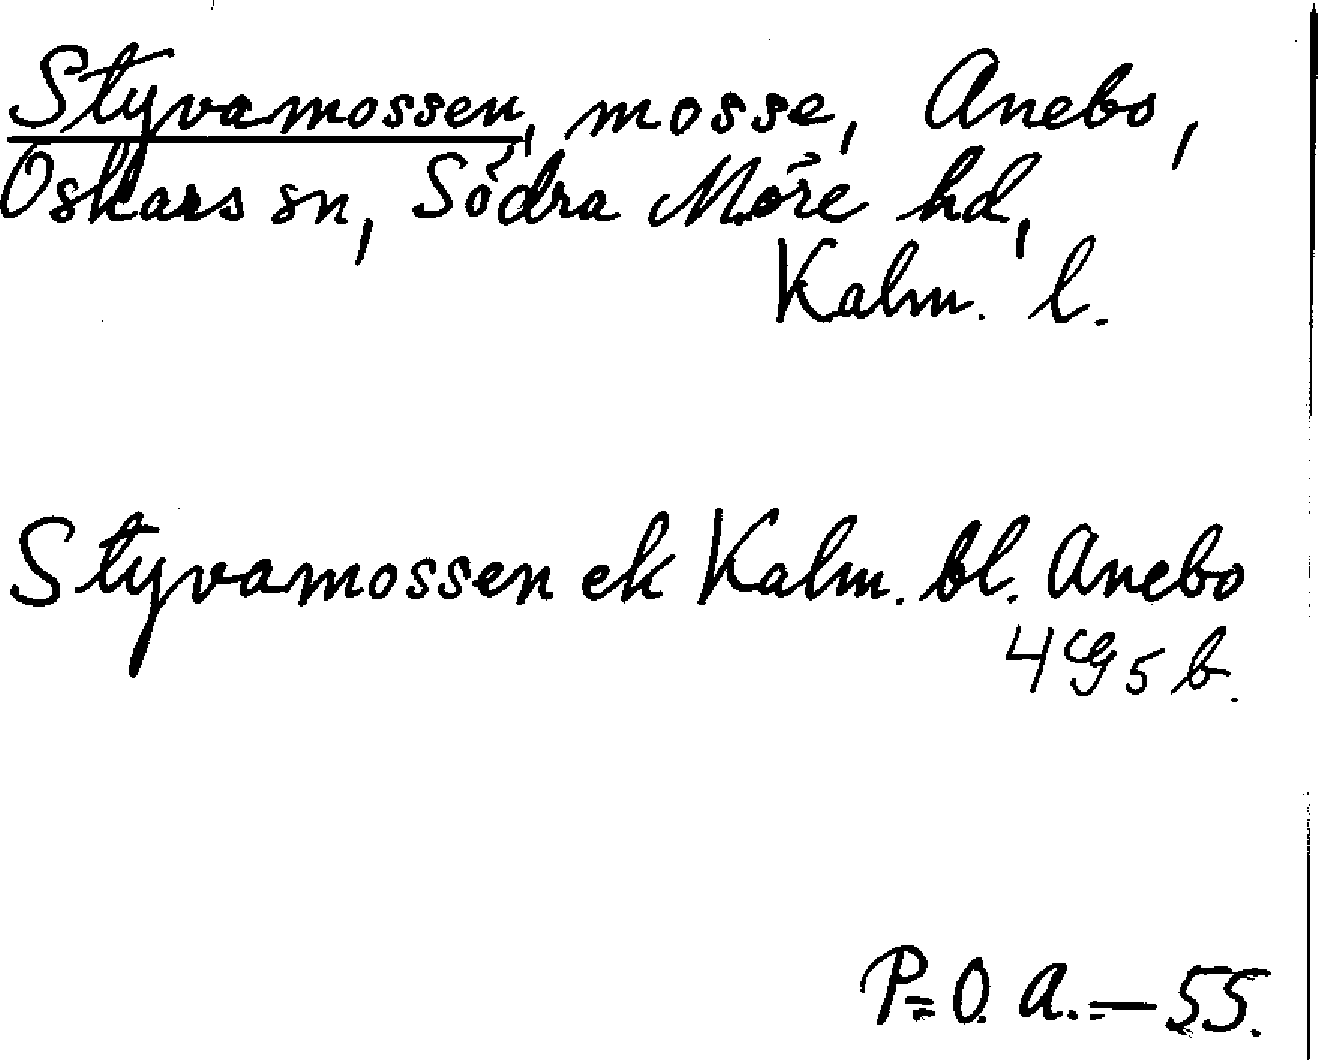 Styvamossen, mosse, Anebo,
Oskars sn, Södra Möre hd,
Kalm. l.
Styvamossen ek Kalm. bl. Anebo
4 G 5 b.
P=O. A. — 55.